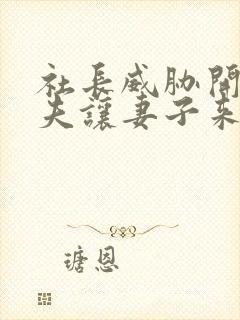 社長威胁開
夫讓妻子來
瑭恩